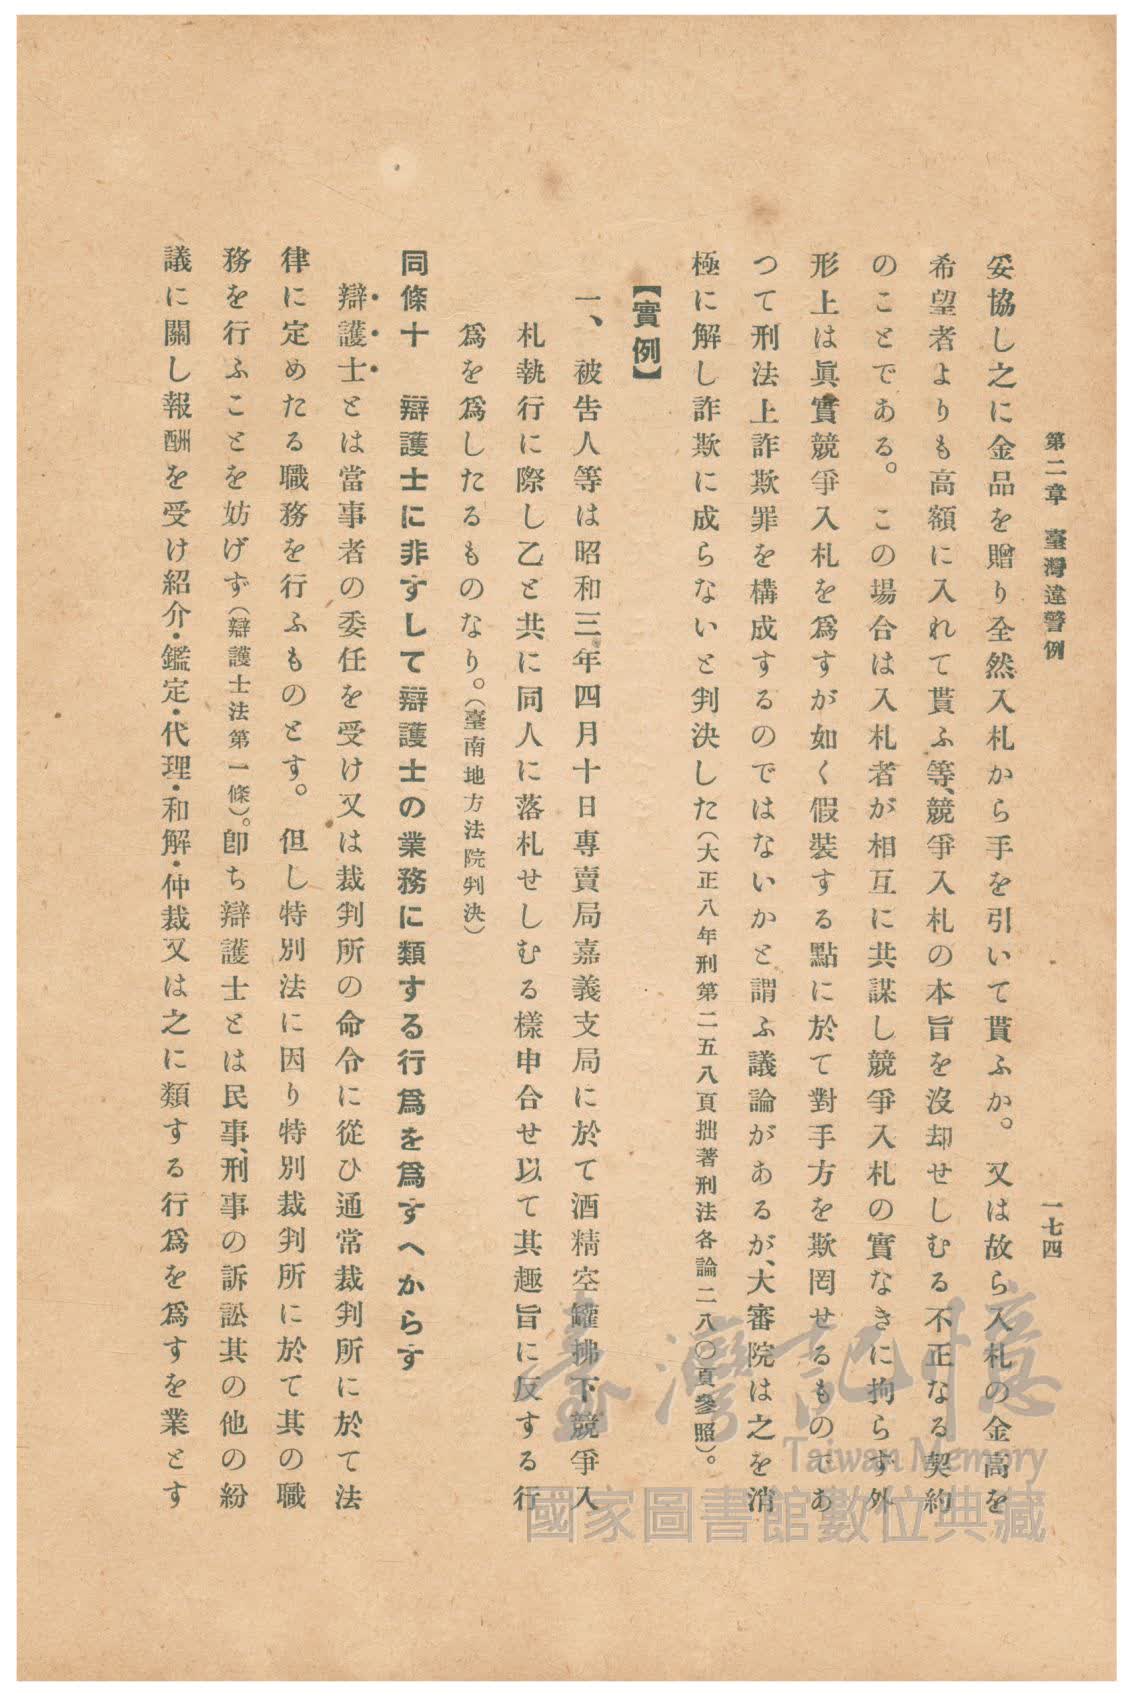 第二章　臺灣違警例　一七四
妥協し之に金品を贈り全然入札から手を引いて貰ふか。又は故ら入札の金高を
希望者よりも高額に入れて貰ふ等、競爭入札の本旨を沒却せしむる不正なる契約
のことである。この場合は入札者が相互に共謀し競爭入札の實なきに拘らず外
形上は眞實競爭入札を爲すが如く假裝する點に於て對手方を欺罔せるものであ
つて刑法上詐欺罪を構成するのではないかと謂ふ議論があるが、大審院は之を消
極に解し詐欺に成らないと判決した（大正八年刑第二五八頁拙著刑法各論二八〇頁參照）。
【實例】
一、被告人等は昭和三年四月十日專賣局嘉義支局に於て酒精空罐拂下競爭入
札執行に際し乙と共に同人に落札せしむる樣申合せ以て其趣旨に反する行
爲を爲したるものなり。（臺南地方法院判決）
同條十　辯護士に非すして辯護士の業務に類する行爲を爲すへからす
辯護士とは當事者の委任を受け又は裁判所の命令に從ひ通常裁判所に於て法
律に定めたる職務を行ふものとす。但し特別法に因り特別裁判所に於て其の職
務を行ふことを妨げず（辯護士法第一條）。卽ち辯護士とは民事、刑事の訴訟其の他の紛
議に關し報酬を受け紹介・鑑定・代理・和解・仲裁又は之に類する行爲を爲すを業とす
臺灣記憶
Taiwan Memory
國家圖書館數位典藏